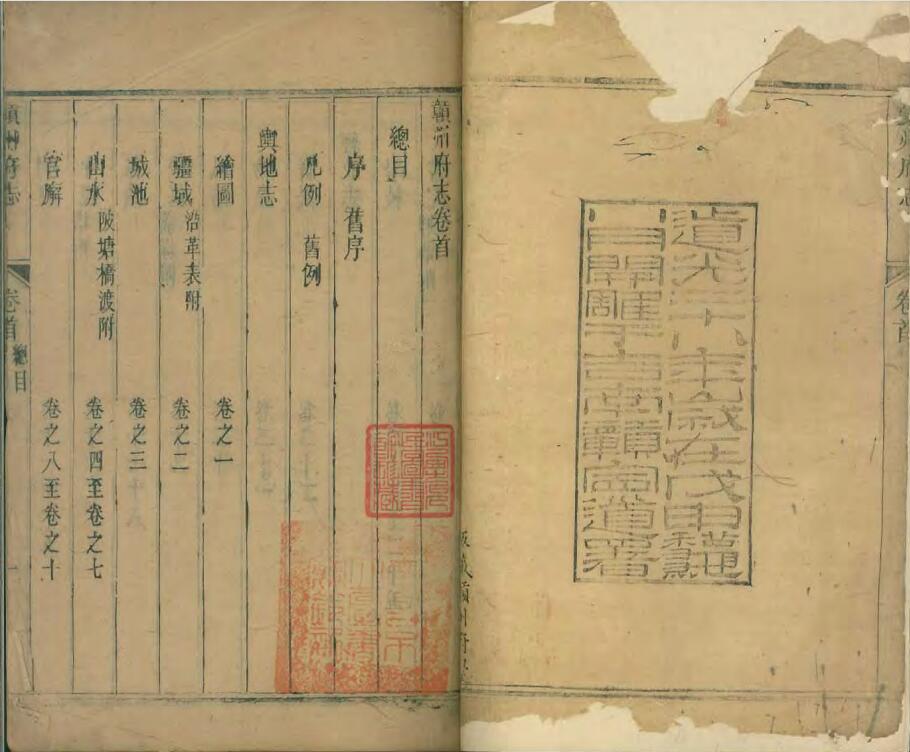 州府志
卷首
道光二十八年歲在戊申龝
月開雕于吉南贛甯道署
贛州府志卷首
總目
序 舊序
凡例 舊例
輿地志
繪圖 卷之一
疆域 沿革表附 卷之二
城池 卷之三
山水 陂塘橋渡附 卷之四至卷之七
官廨 卷之八至卷之十
贛州府志 卷首 總目 一